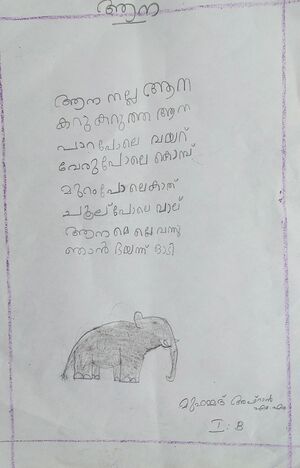 ആന
ആന നല്ല ആന
കറുകറുത്ത ആന
പാറപോലെ വയറ്
വേരുപോലെ കൊമ്പ്
മുറംപോലെകാത്
ചൂല്പോലെ വാല്
ആന മെല്ലെ വന്നു
ഞാൻ ഭയന്ന് ഓടി
മുഹമ്മദ് അഫ്നാൻ
എം.എം
I: B